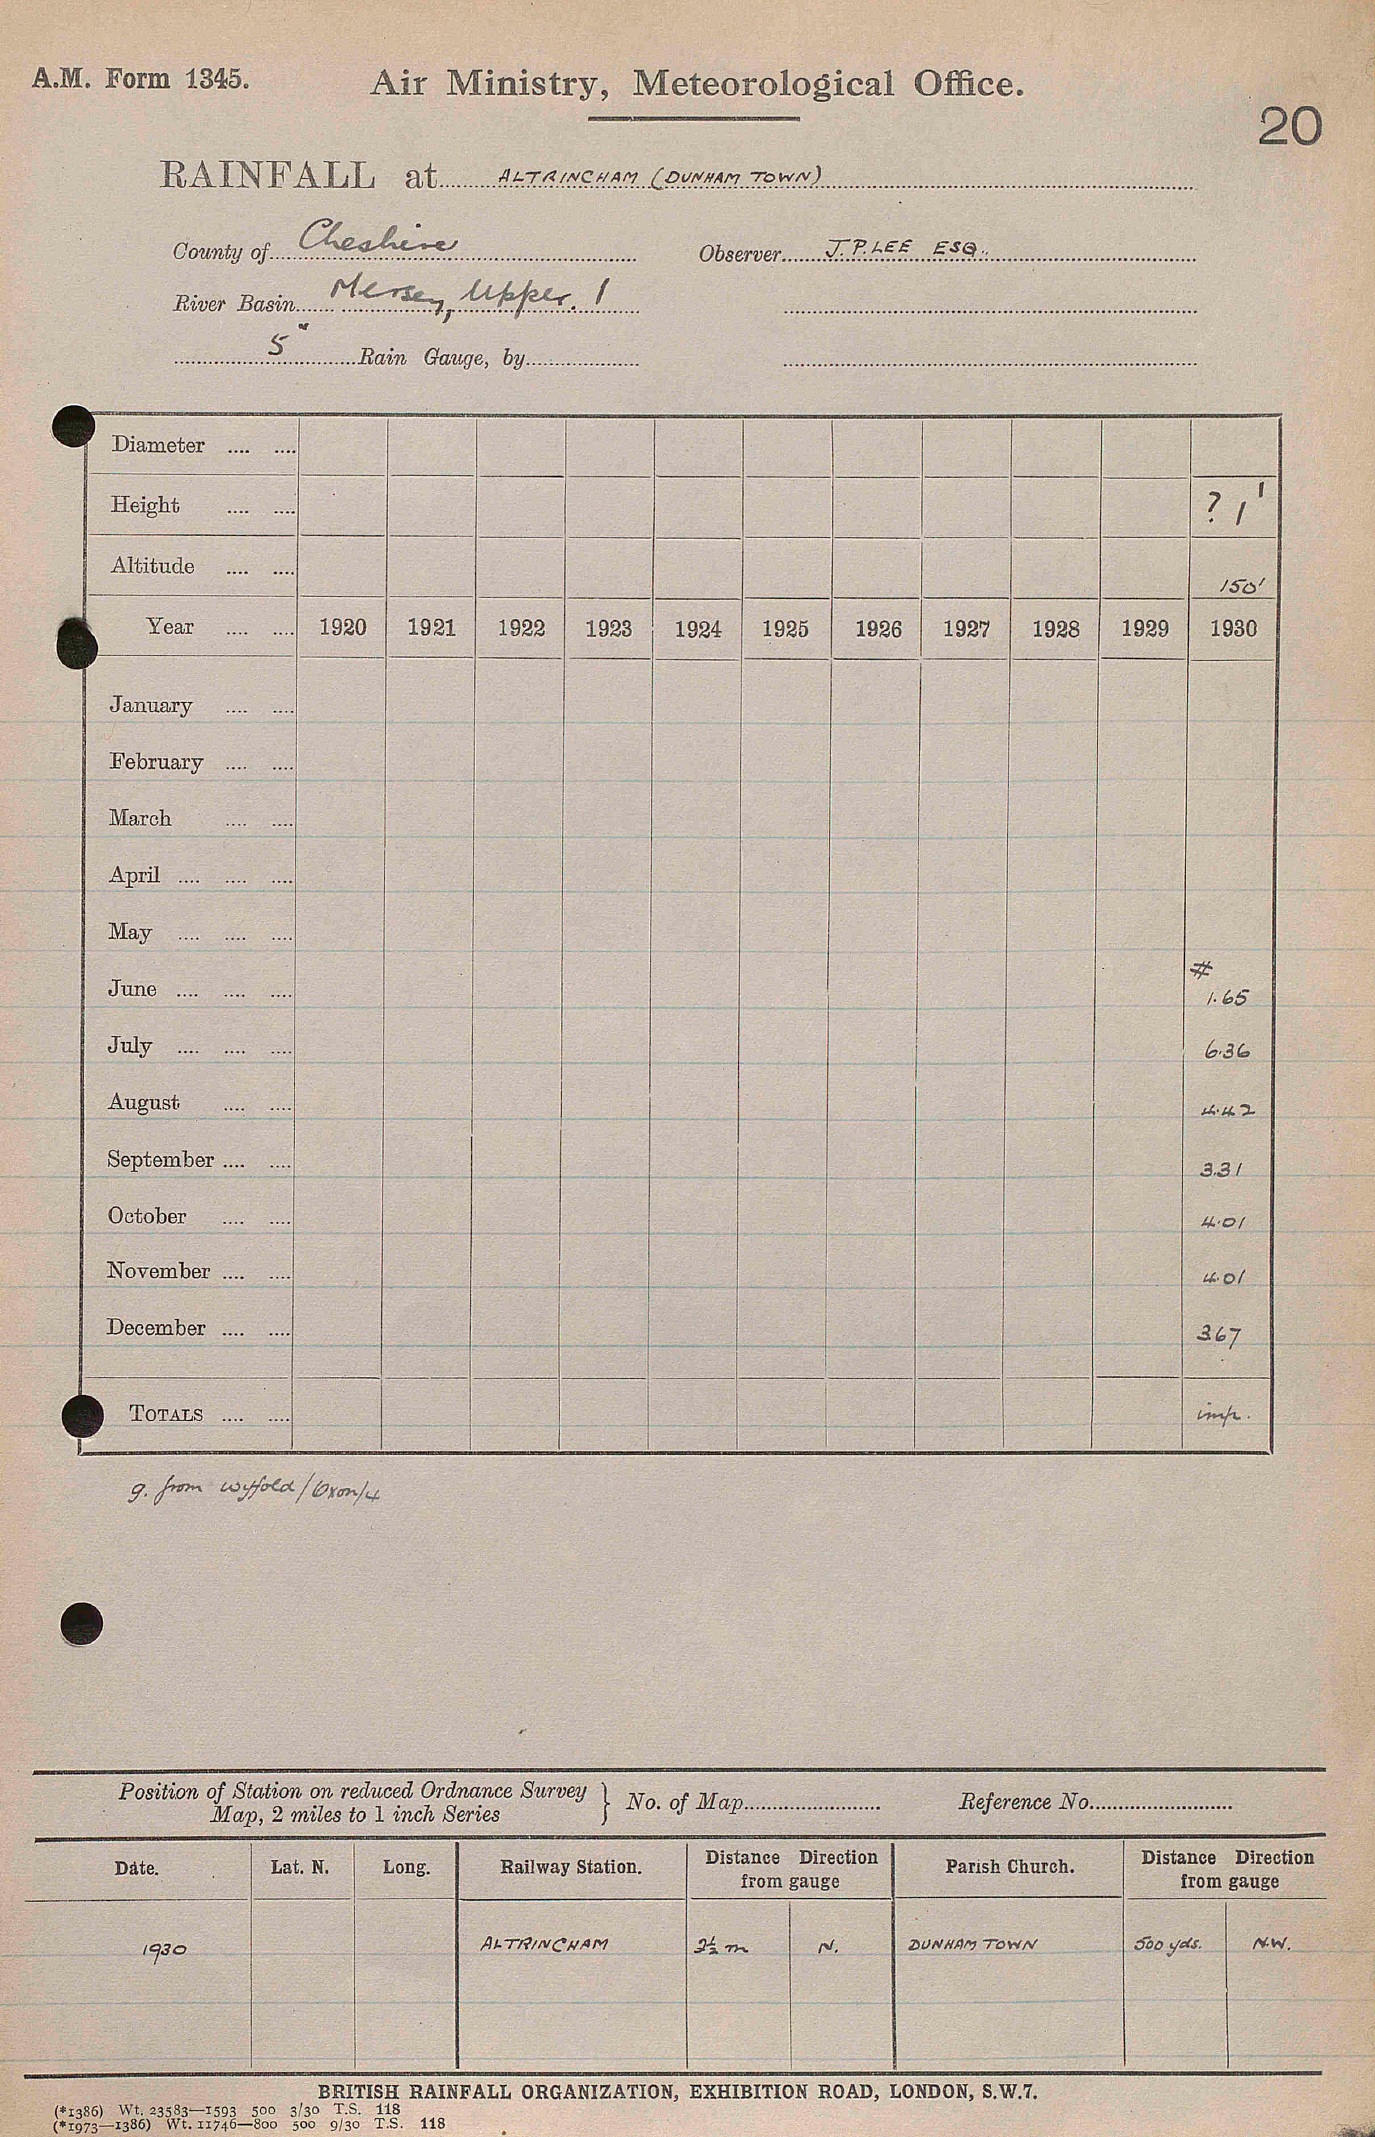 A.M. Form 1345.
Air Ministry, Meteorological Office.
20
RAINFALL at ALTRINCHAM (DUNHAM TOWN)
County of Cheshire Observer J.P. LEE ESQ.
River Basin Mersey, Upper. 1
5" Rain Gauge, by
Diameter .... ....
Height .... .... ? 1'
Altitude .... .... 150'
Year .... .... 1920 1921 1922 1923 1924 1925 1926 1927 1928 1929 1930
January .... ....
February .... ....
March .... ....
April .... .... ....
May .... .... ....
#
June .... .... .... 1.65
July .... .... .... 6.36
August .... .... 4.42
September .... .... 3.31
October .... .... 4.01
November .... .... 4.01
December .... .... 3.67
TOTALS .... .... imp.
g. from Wyfold/Oxon/4
Position of Station on reduced Ordnance Survey
Map, 2 miles to 1 inch Series } No. of Map Reference No.
Date. Lat. N. Long. Railway Station. Distance Direction from gauge Parish Church. Distance Direction from gauge
1930 ALTRINCHAM 2½ m N. DUNHAM TOWN 500 yds. N.W.
BRITISH RAINFALL ORGANIZATION, EXHIBITION ROAD, LONDON, S.W.7.
(*1386) Wt. 23583—1593 500 3/30 T.S. 118
(*1973—1386) Wt. 11746—800 500 9/30 T.S. 118